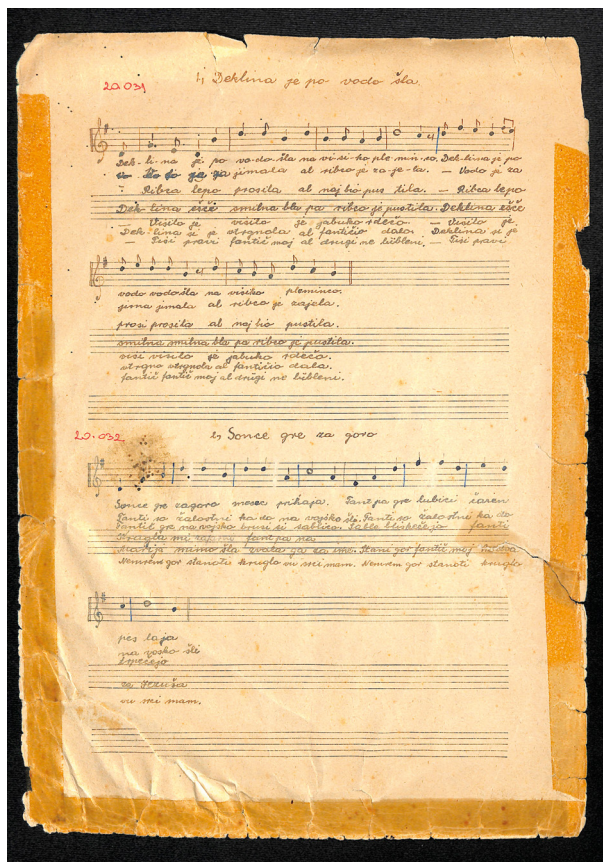 20.031
1, Deklina je po vodo šla
Dek-li-na je po vo-do-šla na vi-si-ko ple-min-co. Dek-lina je po
jimala al ribco je za-je-la. — Vodo je za
Ribra lepo prosila al naj bo pus tila. — Ribca lepo
Dek-lina ešče smilna bla pa ribco je pustila. Deklina ešče
— Visilo je visilo je jabuko rdečo — Visilo je
Deklina si je strgnola al fantičio dala. Deklina si je
— Tiši pravi fantič moj al drugi ne lübleni. — Tiši pravi
vodo vodo šla na visiko pleminco.
jima jimala al ribco je zajela.
prosi prosila al naj bo pustila.
smilna smilna bla pa ribco je pustila.
visi visilo je jabuko rdečo.
strgno strgnola al fantičio dala.
fantič fantič moj al drugi ne lübleni.
20.032
2, Sonce gre za goro
Sonce gre zagoro mesec prihaja. Fant pa gre lubici
Fanti so žalostni ka do na vojsko šli. Fanti so žalostni ka do
Fantič gre na vojsko brusi si sablico. Sable bliskečejo fanti
fant pa na
Marija mimo šla zvala ga za ime. Stani gor fantič moj
Nemrem gor stanoti kruglo vu srci mam. Nemrem gor stanoti kruglo
pes laja
na vosko šli
za Jezuša
vu srci mam.